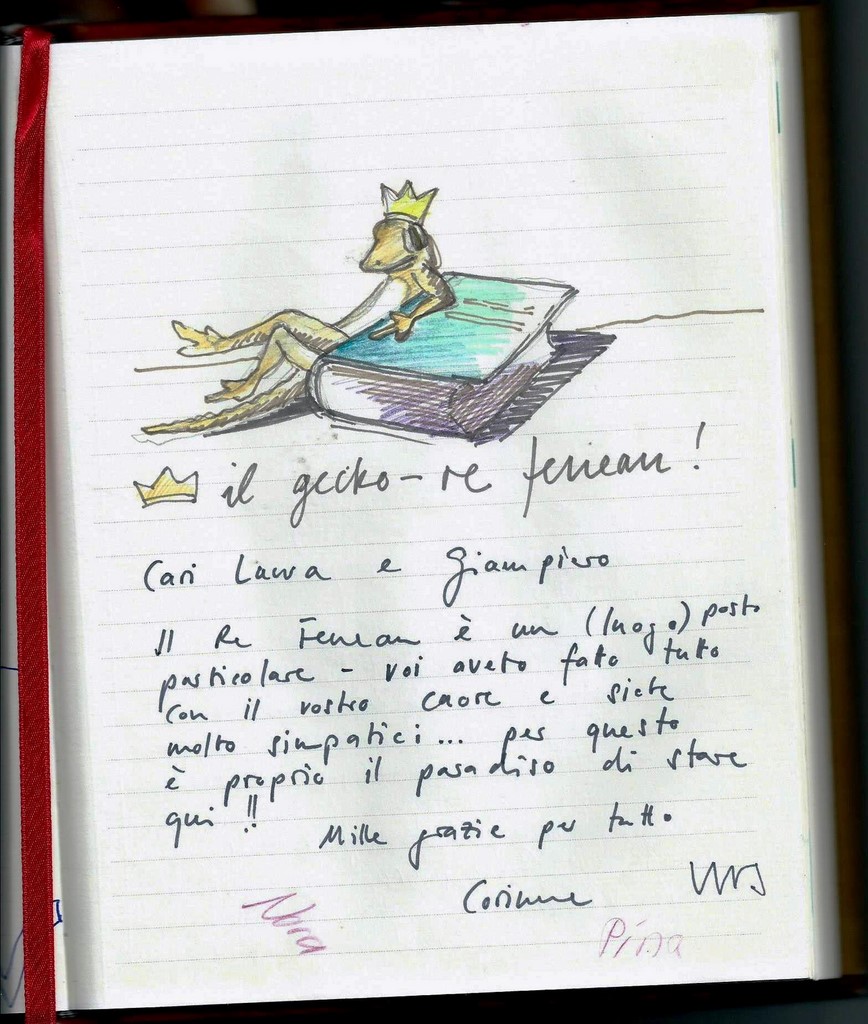 il gecko-re feneau!
Cari Laura e Giampiero
Il Re Feneau è un (luogo) posto
particolare - voi aveto fato tutto
con il vostro cuore e siete
molto simpatici... per questo
è proprio il paradiso di stare
qui!!
Mille grazie per tutto
Corinne Urs
Nora Pina